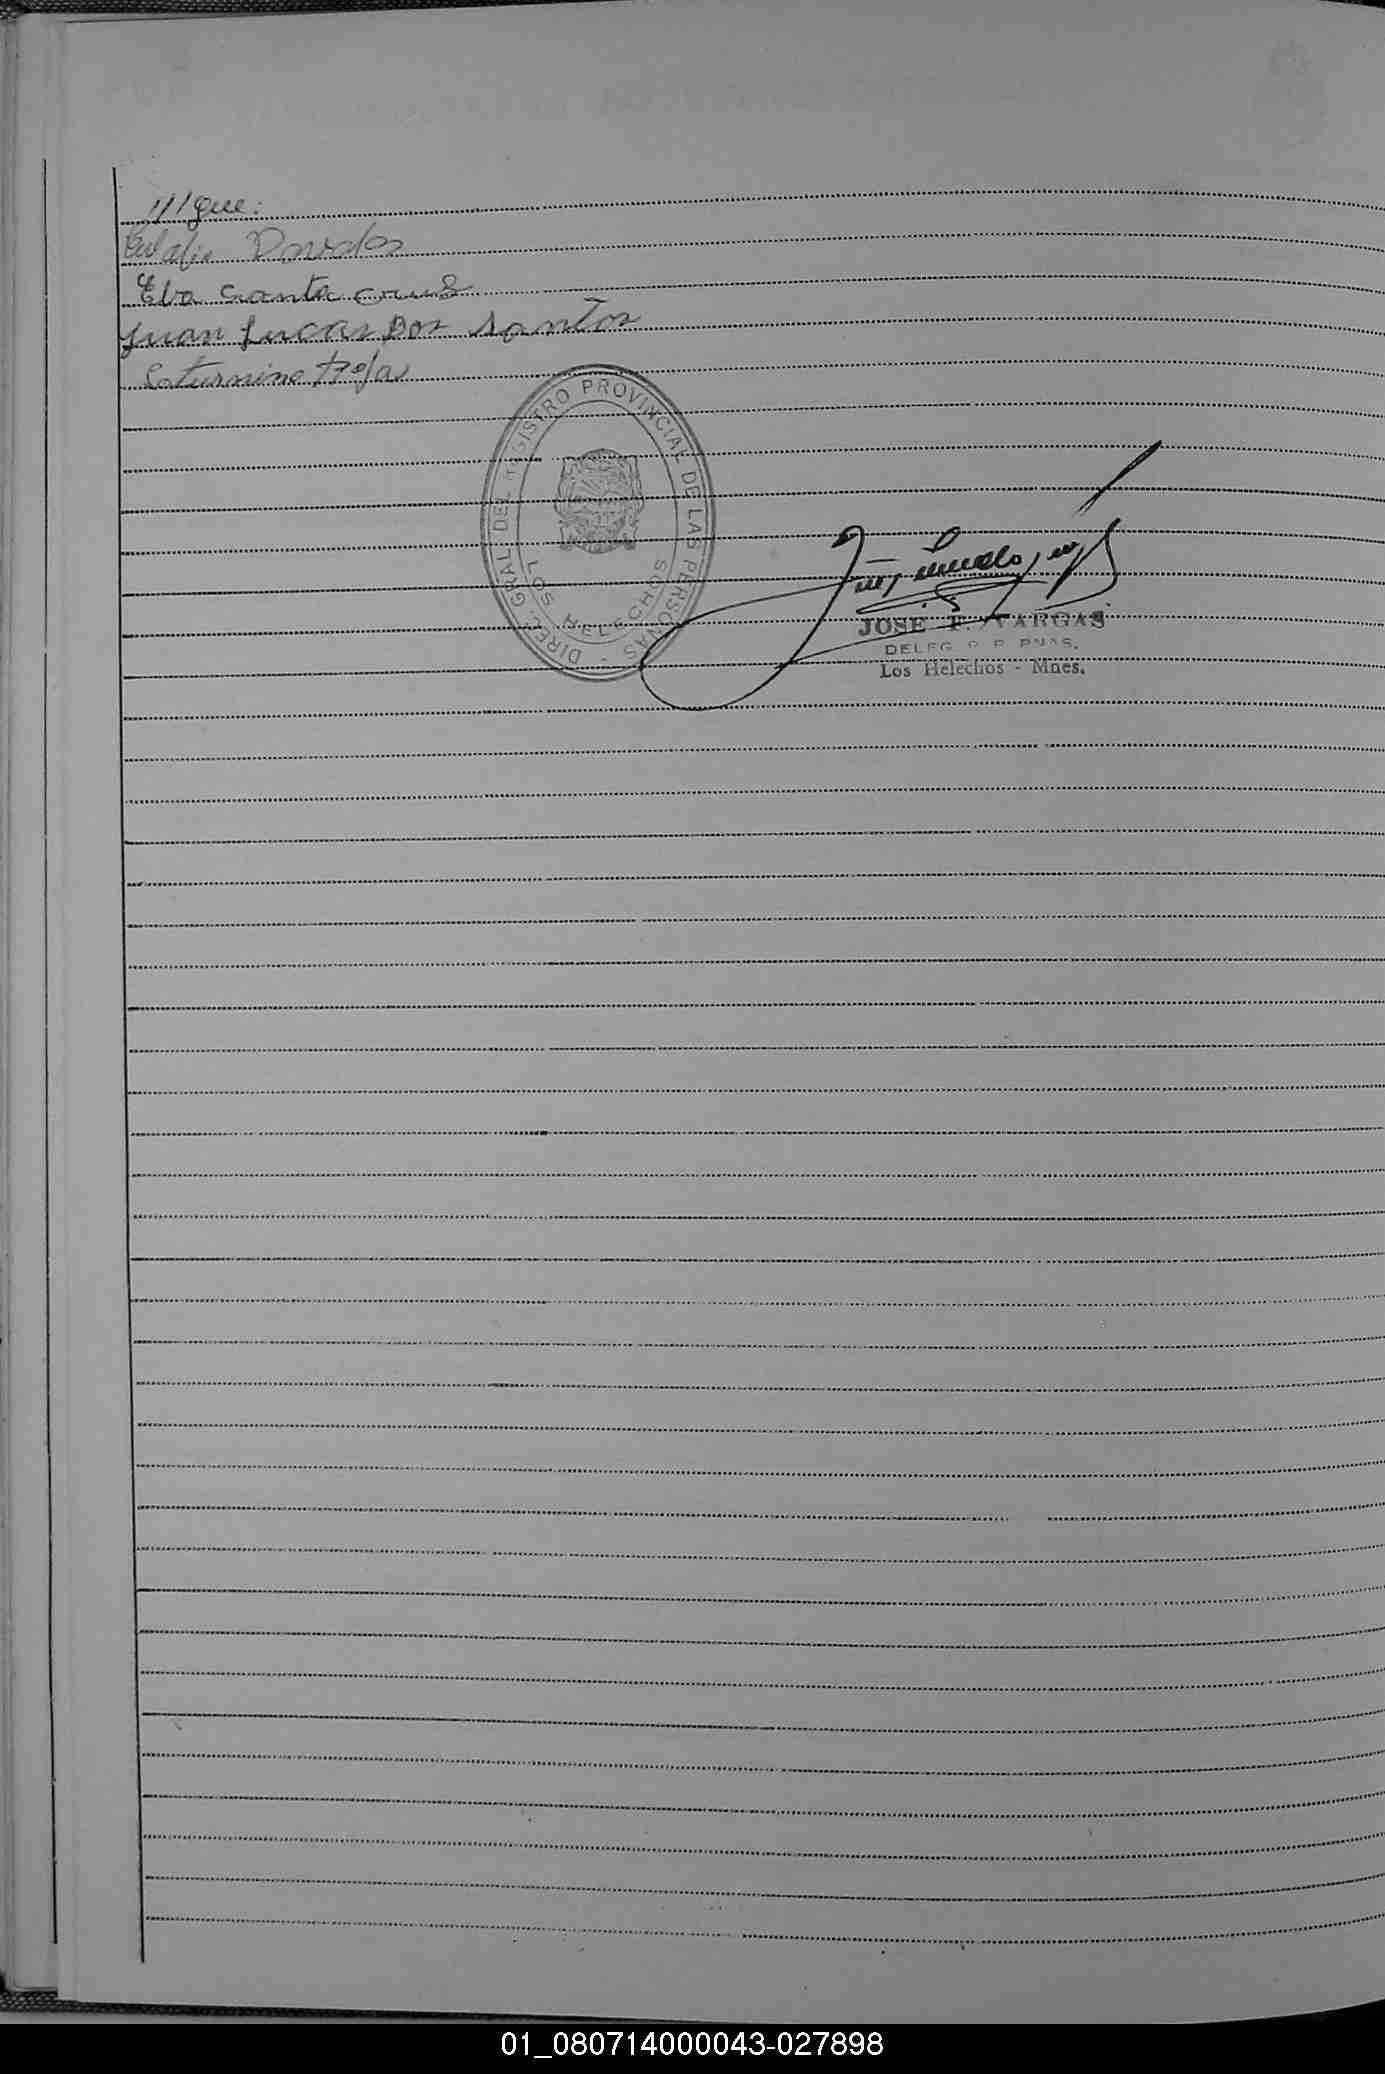 ///gue:
Eva Santa crus
Juan Lucas Dos Santos
Saturnino Rojas
DIREC. GRAL DEL REGISTRO PROVINCIAL DE LAS PERSONAS -
LOS HELECHOS
JOSE F. VARGAS
DELEG. R. P. PNAS.
Los Helechos - Mnes.
01_080714000043-027898